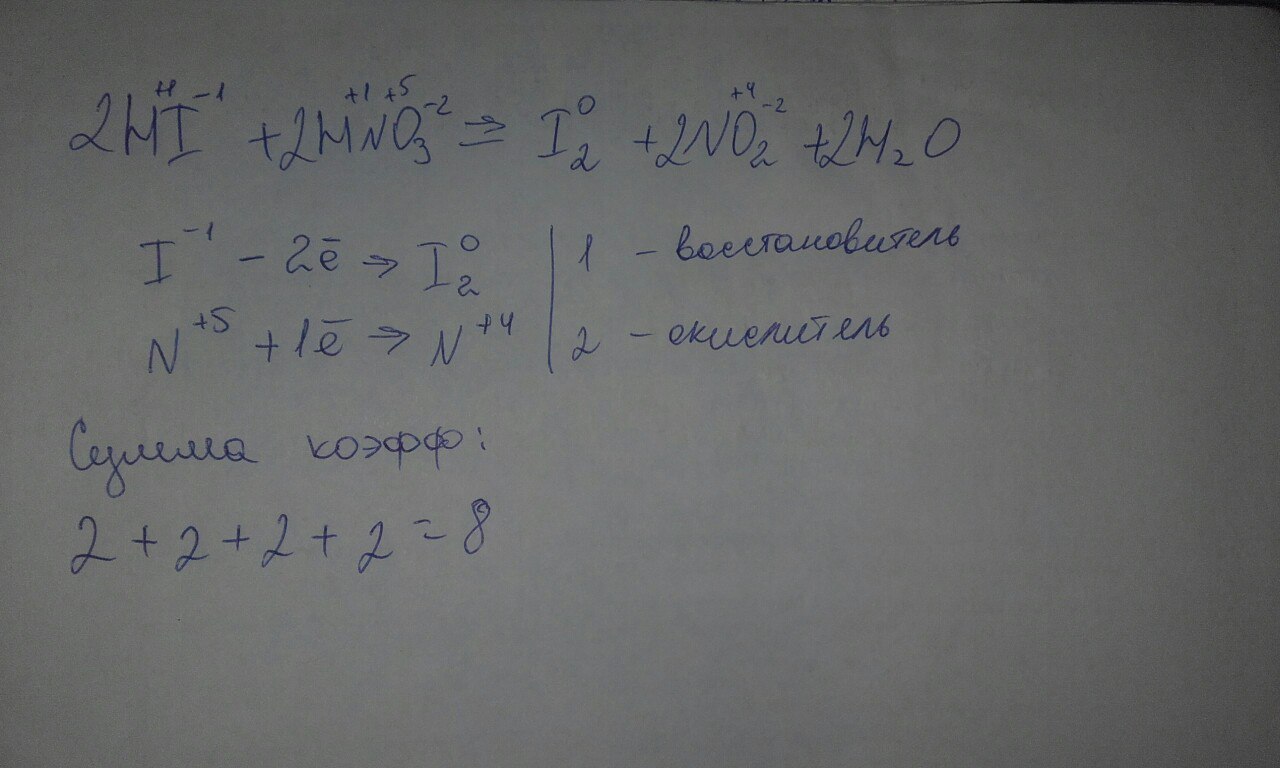 2H⁺¹I⁻¹ + 2H⁺¹N⁺⁵O₃⁻² ⇒ I₂⁰ + 2N⁺⁴O₂⁻² + 2H₂O
I⁻¹ - 2ē → I₂⁰ | 1 - восстановитель
N⁺⁵ + 1ē → N⁺⁴ | 2 - окислитель
Сумма коэфф:
2 + 2 + 2 + 2 = 8